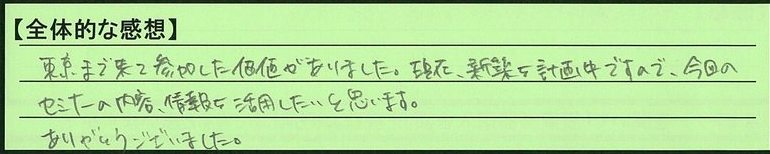 【全体的な感想】
東京まで来て参加した価値がありました。現在、新築を計画中ですので、今回の
セミナーの内容、情報を活用したいと思います。
ありがとうございました。